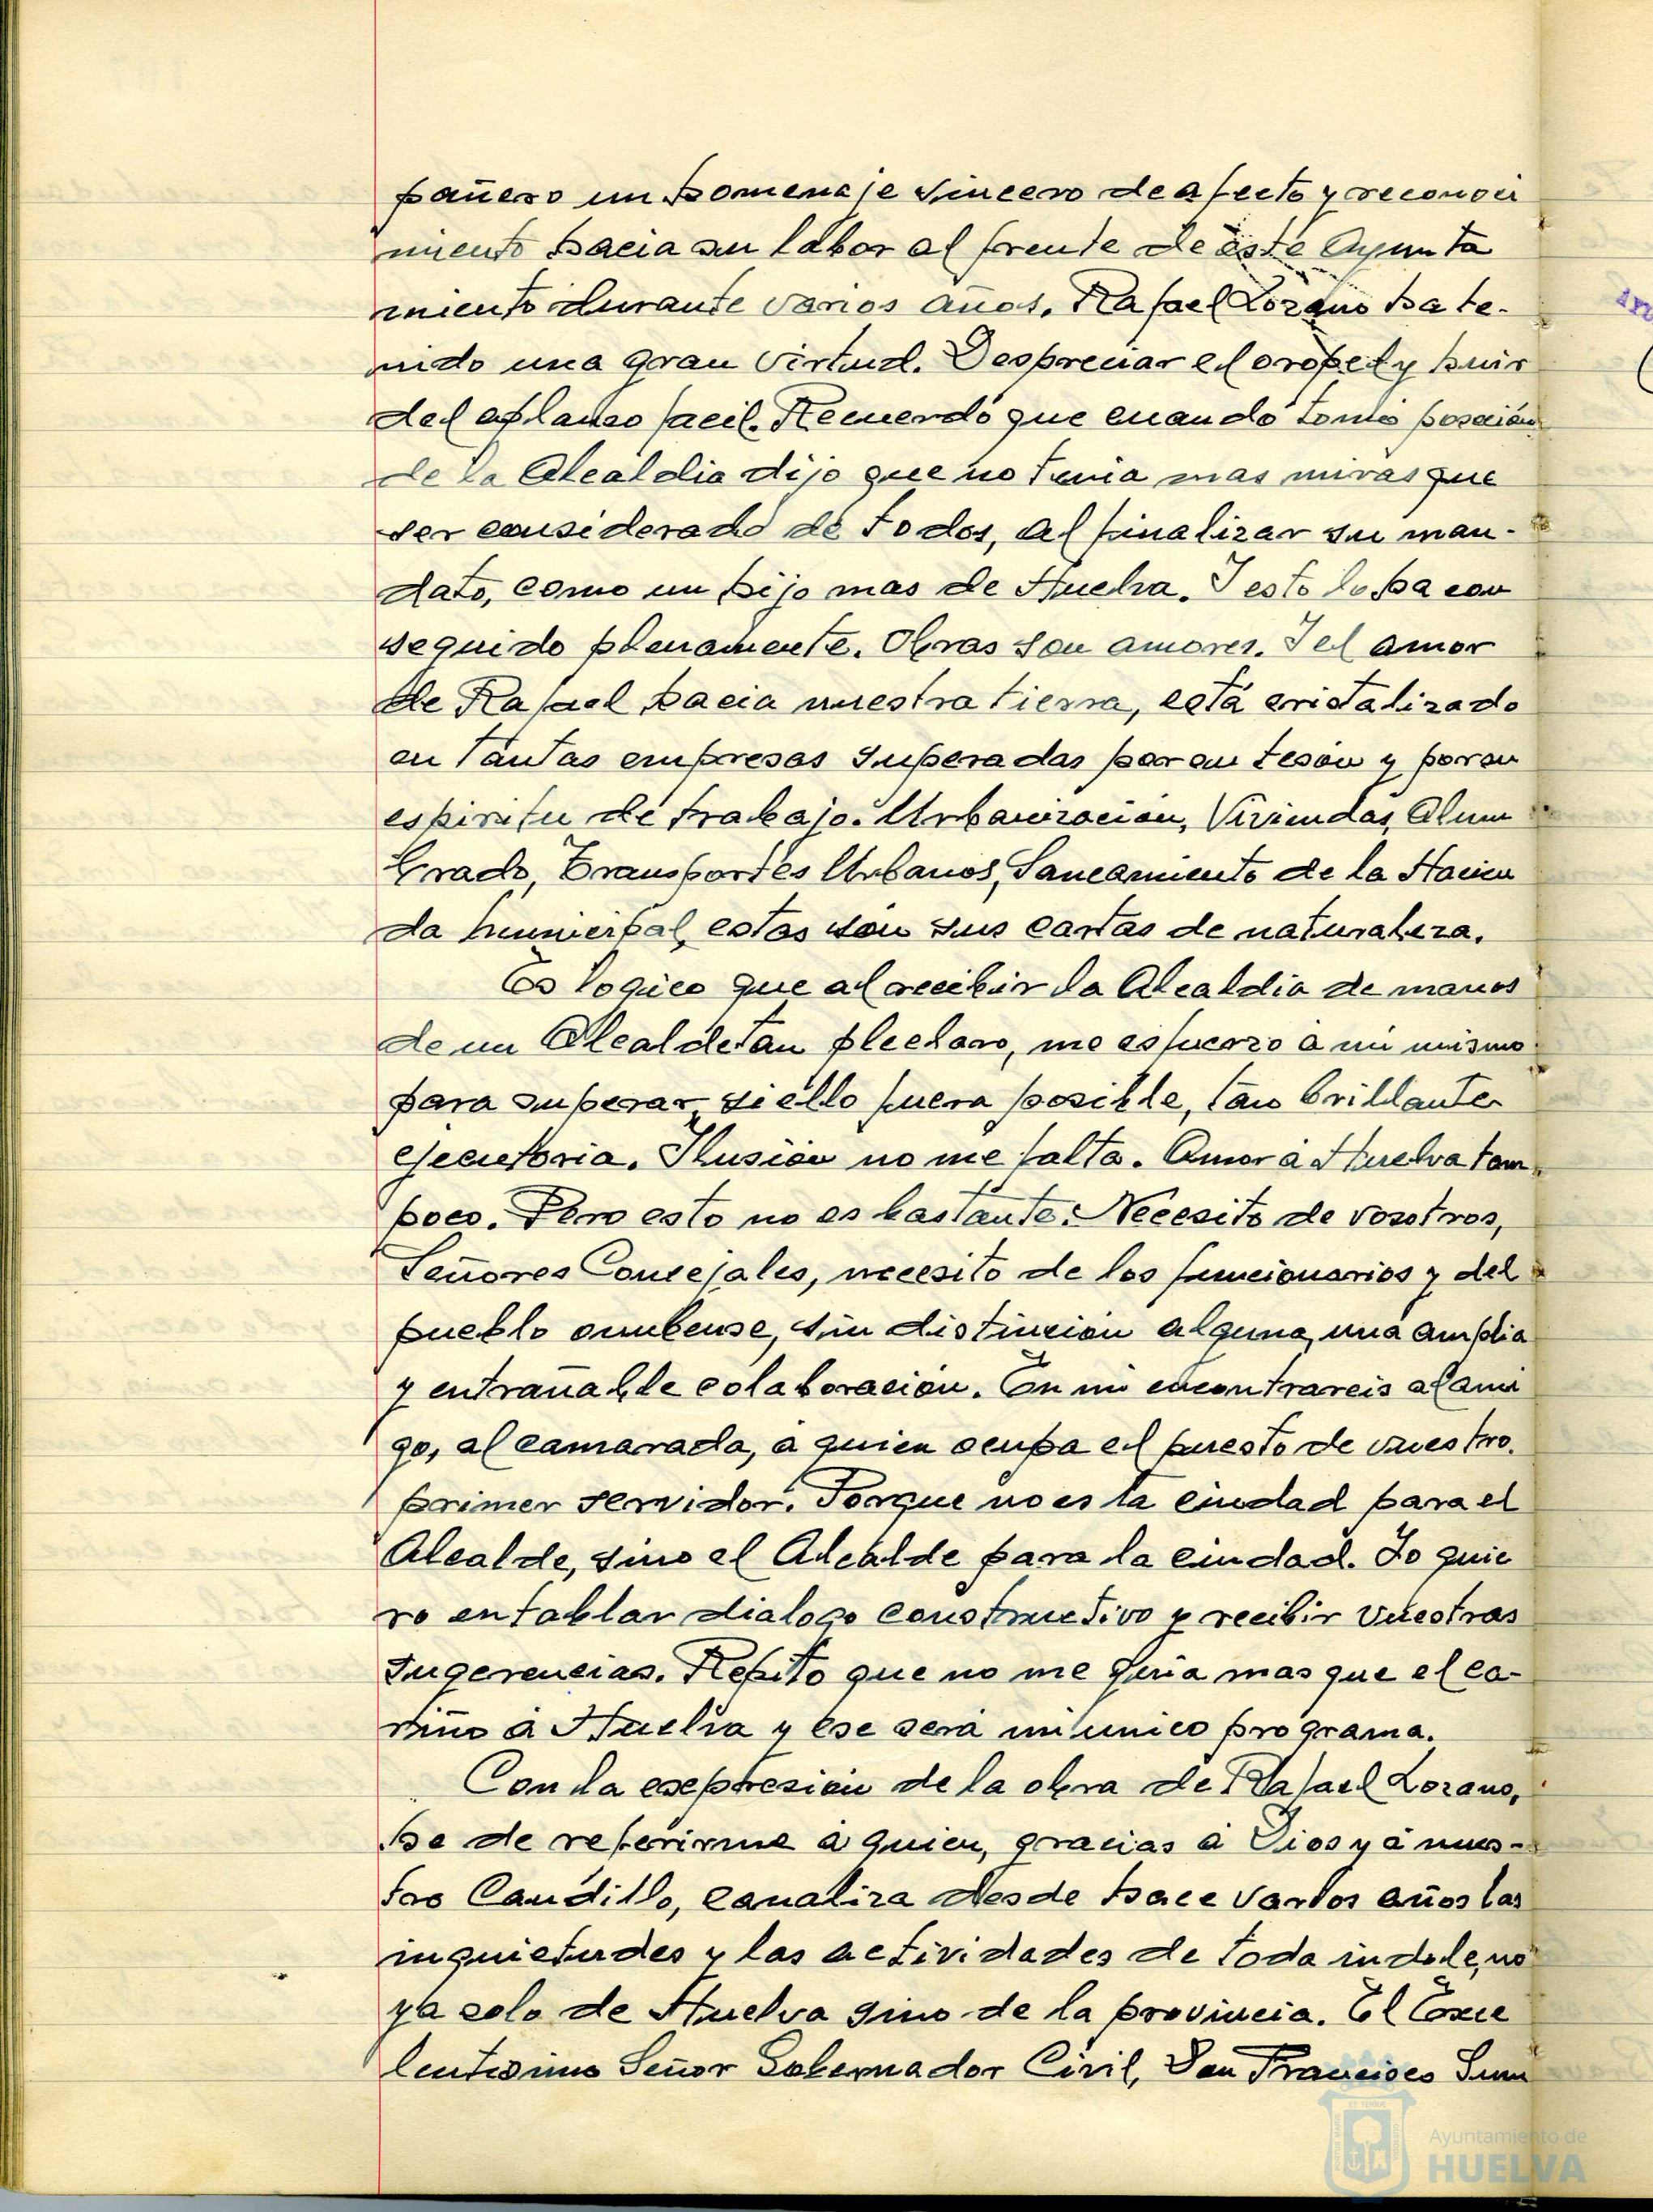 pañero un homenaje sincero de afecto y reconoci
miento hacia su labor al frente de este Ayunta
miento durante varios años. Rafael Lozano ha te-
nido una gran virtud. Despreciar el oropel y huir
del aplauso facil. Recuerdo que cuando tomó posesión
de la Alcaldia dijo que no tenia mas miras que
ser considerado de todos, al finalizar su man-
dato, como un hijo mas de Huelva. I esto lo ha con
seguido plenamente. Obras son amores. I el amor
de Rafael hacia nuestra tierra, está cristalizado
en tantas empresas superadas por su tesón y por su
espiritu de trabajo. Urbanización, Viviendas, Alum
brado, Transportes Urbanos, Saneamiento de la Hacien
da Municipal, estas son sus cartas de naturaleza.
Es logico que al recibir la Alcaldia de manos
de un Alcalde tan preclaro, me esfuerzo a mi mismo
para superar, si ello fuera posible, tan brillante
ejecutoria. Ilusión no me falta. Amor á Huelva tam
poco. Pero esto no es bastante. Necesito de vosotros,
Señores Concejales, necesito de los funcionarios y del
pueblo onubense, sin distinción alguna, una amplia
y entrañable colaboración. En mi encontrareis al ami
go, al camarada, a quien ocupa el puesto de vuestro
primer servidor. Porque no es la ciudad para el
Alcalde, sino el Alcalde para la ciudad. Io quie
ro entablar dialogo constructivo y recibir vuestras
sugerencias. Repito que no me guia mas que el ca-
riño a Huelva y ese será mi unico programa.
Con la esepresión de la obra de Rafael Lozano,
he de referirme a quien, gracias a Dios y á nues-
tro Caudillo, canaliza desde hace varios años las
inquietudes y las actividades de toda indole, no
ya solo de Huelva sino de la provincia. El Exce
lentisimo Señor Gobernador Civil, Don Francisco Sum
Ayuntamiento de
HUELVA